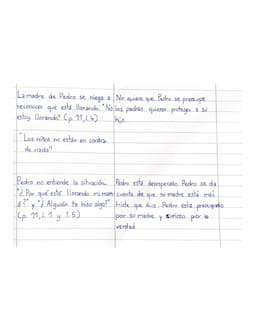 La madre de Pedro se niega a
reconocer que está llorando. "No
estoy llorando" (p. 11, l. 4)
No quiere que Pedro se preocupe
los padres quieren proteger a su
hijo.
"Los niños no están en contra
de nada"
Pedro no entiende la situación.
"¿Por qué está llorando mi mam
á?" y "¿Alguien te hizo algo?"
(p. 11, l. 1 y l. 5)
Pedro está desesperado. Pedro se da
cuenta de que su madre está más
triste que dice. Pedro está preocupado
por su madre y curioso por la
verdad